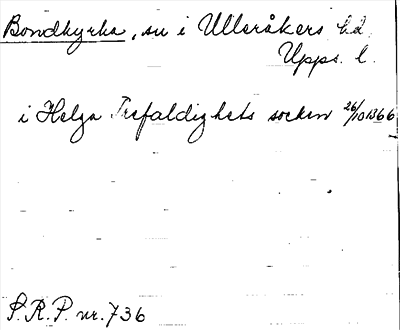 Bondkyrka, sn i Ulleråkers hd,
Upps. l.
i Helga Trefaldighets socken 26/10 1366
S.R.P. nr. 736